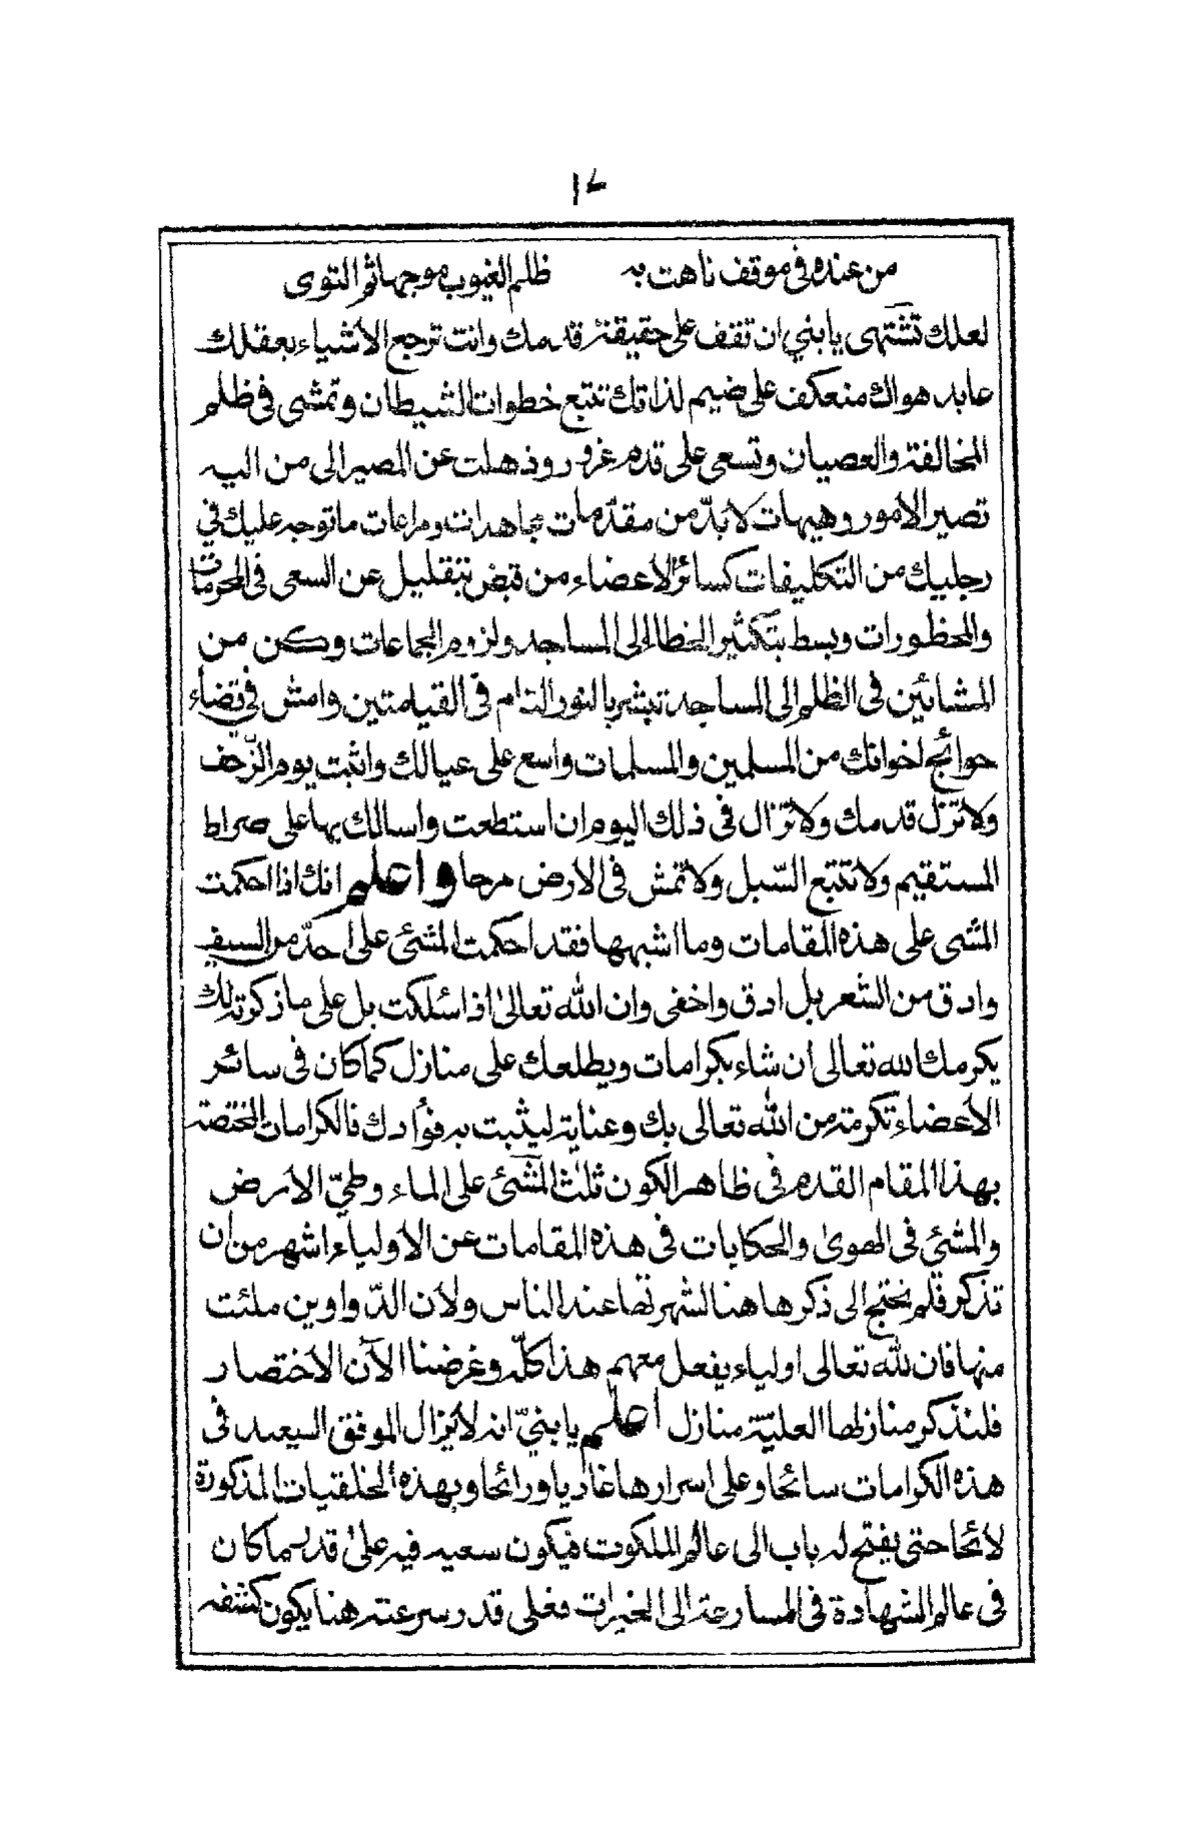 من عنده فى موقف تاهت به ظلم الغيوب موجها ثم التوى
لعلك تشتهى يابني ان تقف على حقيقة قدمك وانت ترجع الأشياء بعقلك
عابد هواك منعكف على ضيم لذاتك تتبع خطوات الشيطان وتمشى فى ظلم
المخالفة والعصيان وتسعى على قدم غرور وذهلت عن المصير الى من اليه
تصير الامور وهيهات لابدّ من مقدّمات مجاهدات ومراعات ماتوجه عليك في
رجليك من التكليفات كسائر الأعضاء من قبض بتقليل عن السعى فى المحرمات
والمحظورات وبسط بتكثير الخطا الى المساجد ولزوم الجماعات وكن من
المشائين فى الظلم الى المساجد تبشر بالنور التام فى القيامتين وامش في قضاء
حوائج اخوانك من المسلمين والمسلمات واسع على عيالك واثبت يوم الزّحف
ولاتزل قدمك ولاتزال فى ذلك اليوم ان استطعت واسالك بها على صراط
المستقيم ولاتتبع السّبل ولاتمش فى الارض مرحا واعلم انك اذا احكمت
المشى على هذه المقامات وما اشبهها فقد احكمت المشئ على احدّ من السيف
وادق من الشعر بل ادق واخفى وان الله تعالى اذا سئلكت بل على ماذكرته لك
يكرمك الله تعالى ان شاء بكرامات ويطلعك على منازل كما كان فى سائر
الأعضاء تكرمة من الله تعالى بك وعناية ليثبت به فؤادك فالكرامات المختصة
بهذا المقام القدم فى ظاهر الكون ثلث المشئ على الماء وطيّ الأرض
والمشئ فى الهوى والحكايات فى هذه المقامات عن الأولياء اشهر من ان
تذكر فلم نحتج الى ذكرها هنا لشهرتها عند الناس ولأن الدّواوين ملئت
منها فان لله تعالى اولياء يفعل معهم هذا كلّه وغرضنا الآن الأختصار
فلنذكر منازلها العليّة منازل اعلم يابنيّ انه لايزال الموفق السعيد فى
هذه الكرامات سائحا وعلى اسرارها غاديا ورائحا وبهذه الخلقيات المذكورة
لائحا حتى يفتح له باب الى عالم الملكوت فيكون سعيه فيه على قدر ماكان
فى عالم الشهادة فى المسارعة الى الخيرات فعلى قدر سرعته هنا يكون كشفه